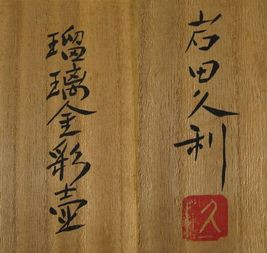 瑠璃金彩壷
岩田久利
久